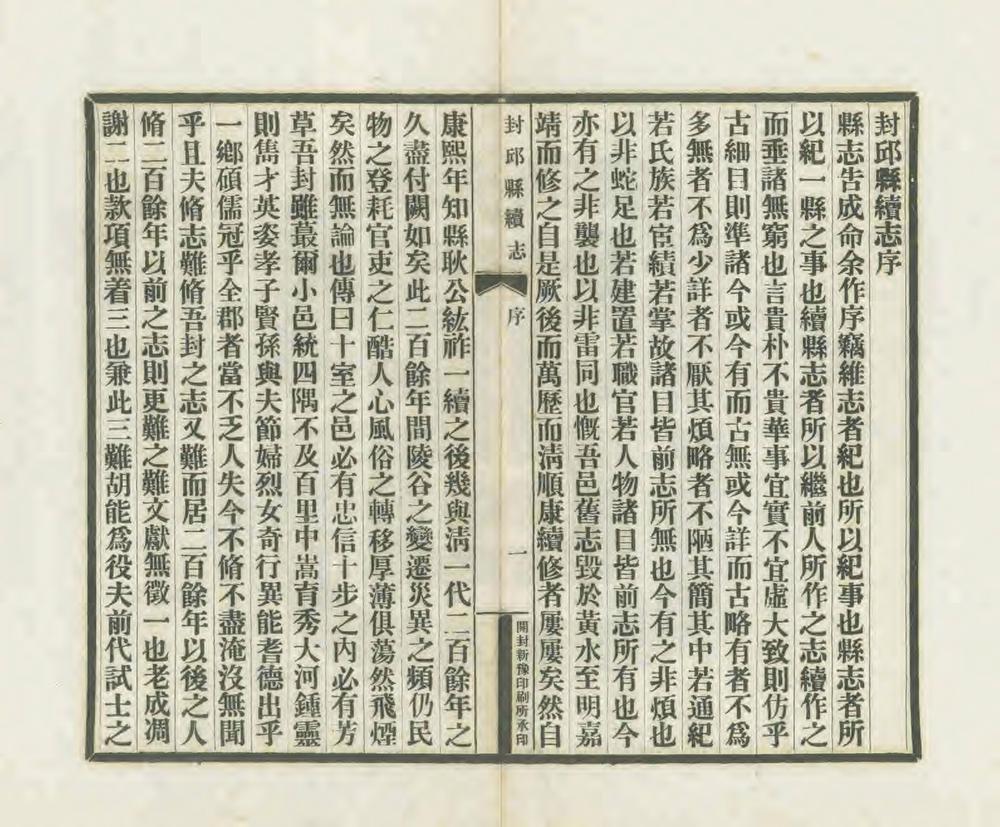 封邱縣續志序
縣志告成命余作序竊維志者紀也所以紀事也縣志者所
以紀一縣之事也續縣志者所以繼前人所作之志續作之
而垂諸無窮也言貴朴不貴華事宜實不宜虛大致則仿乎
古細目則準諸今或今有而古無或今詳而古略有者不為
多無者不為少詳者不厭其煩略者不陋其簡其中若通紀
若氏族若宦績若掌故諸目皆前志所無也今有之非煩也
以非蛇足也若建置若職官若人物諸目皆前志所有也今
亦有之非襲也以非雷同也慨吾邑舊志毀於黃水至明嘉
靖而修之自是厥後而萬歷而清順康續修者屢屢矣然自
封邱縣續志
序
一
開封新豫印刷所承印
康熙年知縣耿公紘祚一續之後幾與清一代二百餘年之
久盡付闕如矣此二百餘年間陵谷之變遷災異之頻仍民
物之登耗官吏之仁酷人心風俗之轉移厚薄俱蕩然飛煙
矣然而無論也傳曰十室之邑必有忠信十步之內必有芳
草吾封雖蕞爾小邑統四隅不及百里中嵩育秀大河鍾靈
則雋才英姿孝子賢孫與夫節婦烈女奇行異能耆德出乎
一鄉碩儒冠乎全郡者當不乏人失今不脩不盡淹沒無聞
乎且夫脩志難脩吾封之志又難而居二百餘年以後之人
脩二百餘年以前之志則更難之難文獻無徵一也老成凋
謝二也款項無着三也兼此三難胡能為役夫前代試士之